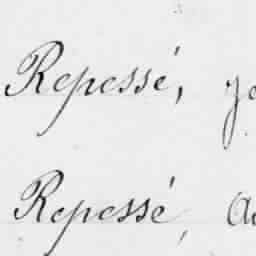 Repessé,
Repessé,